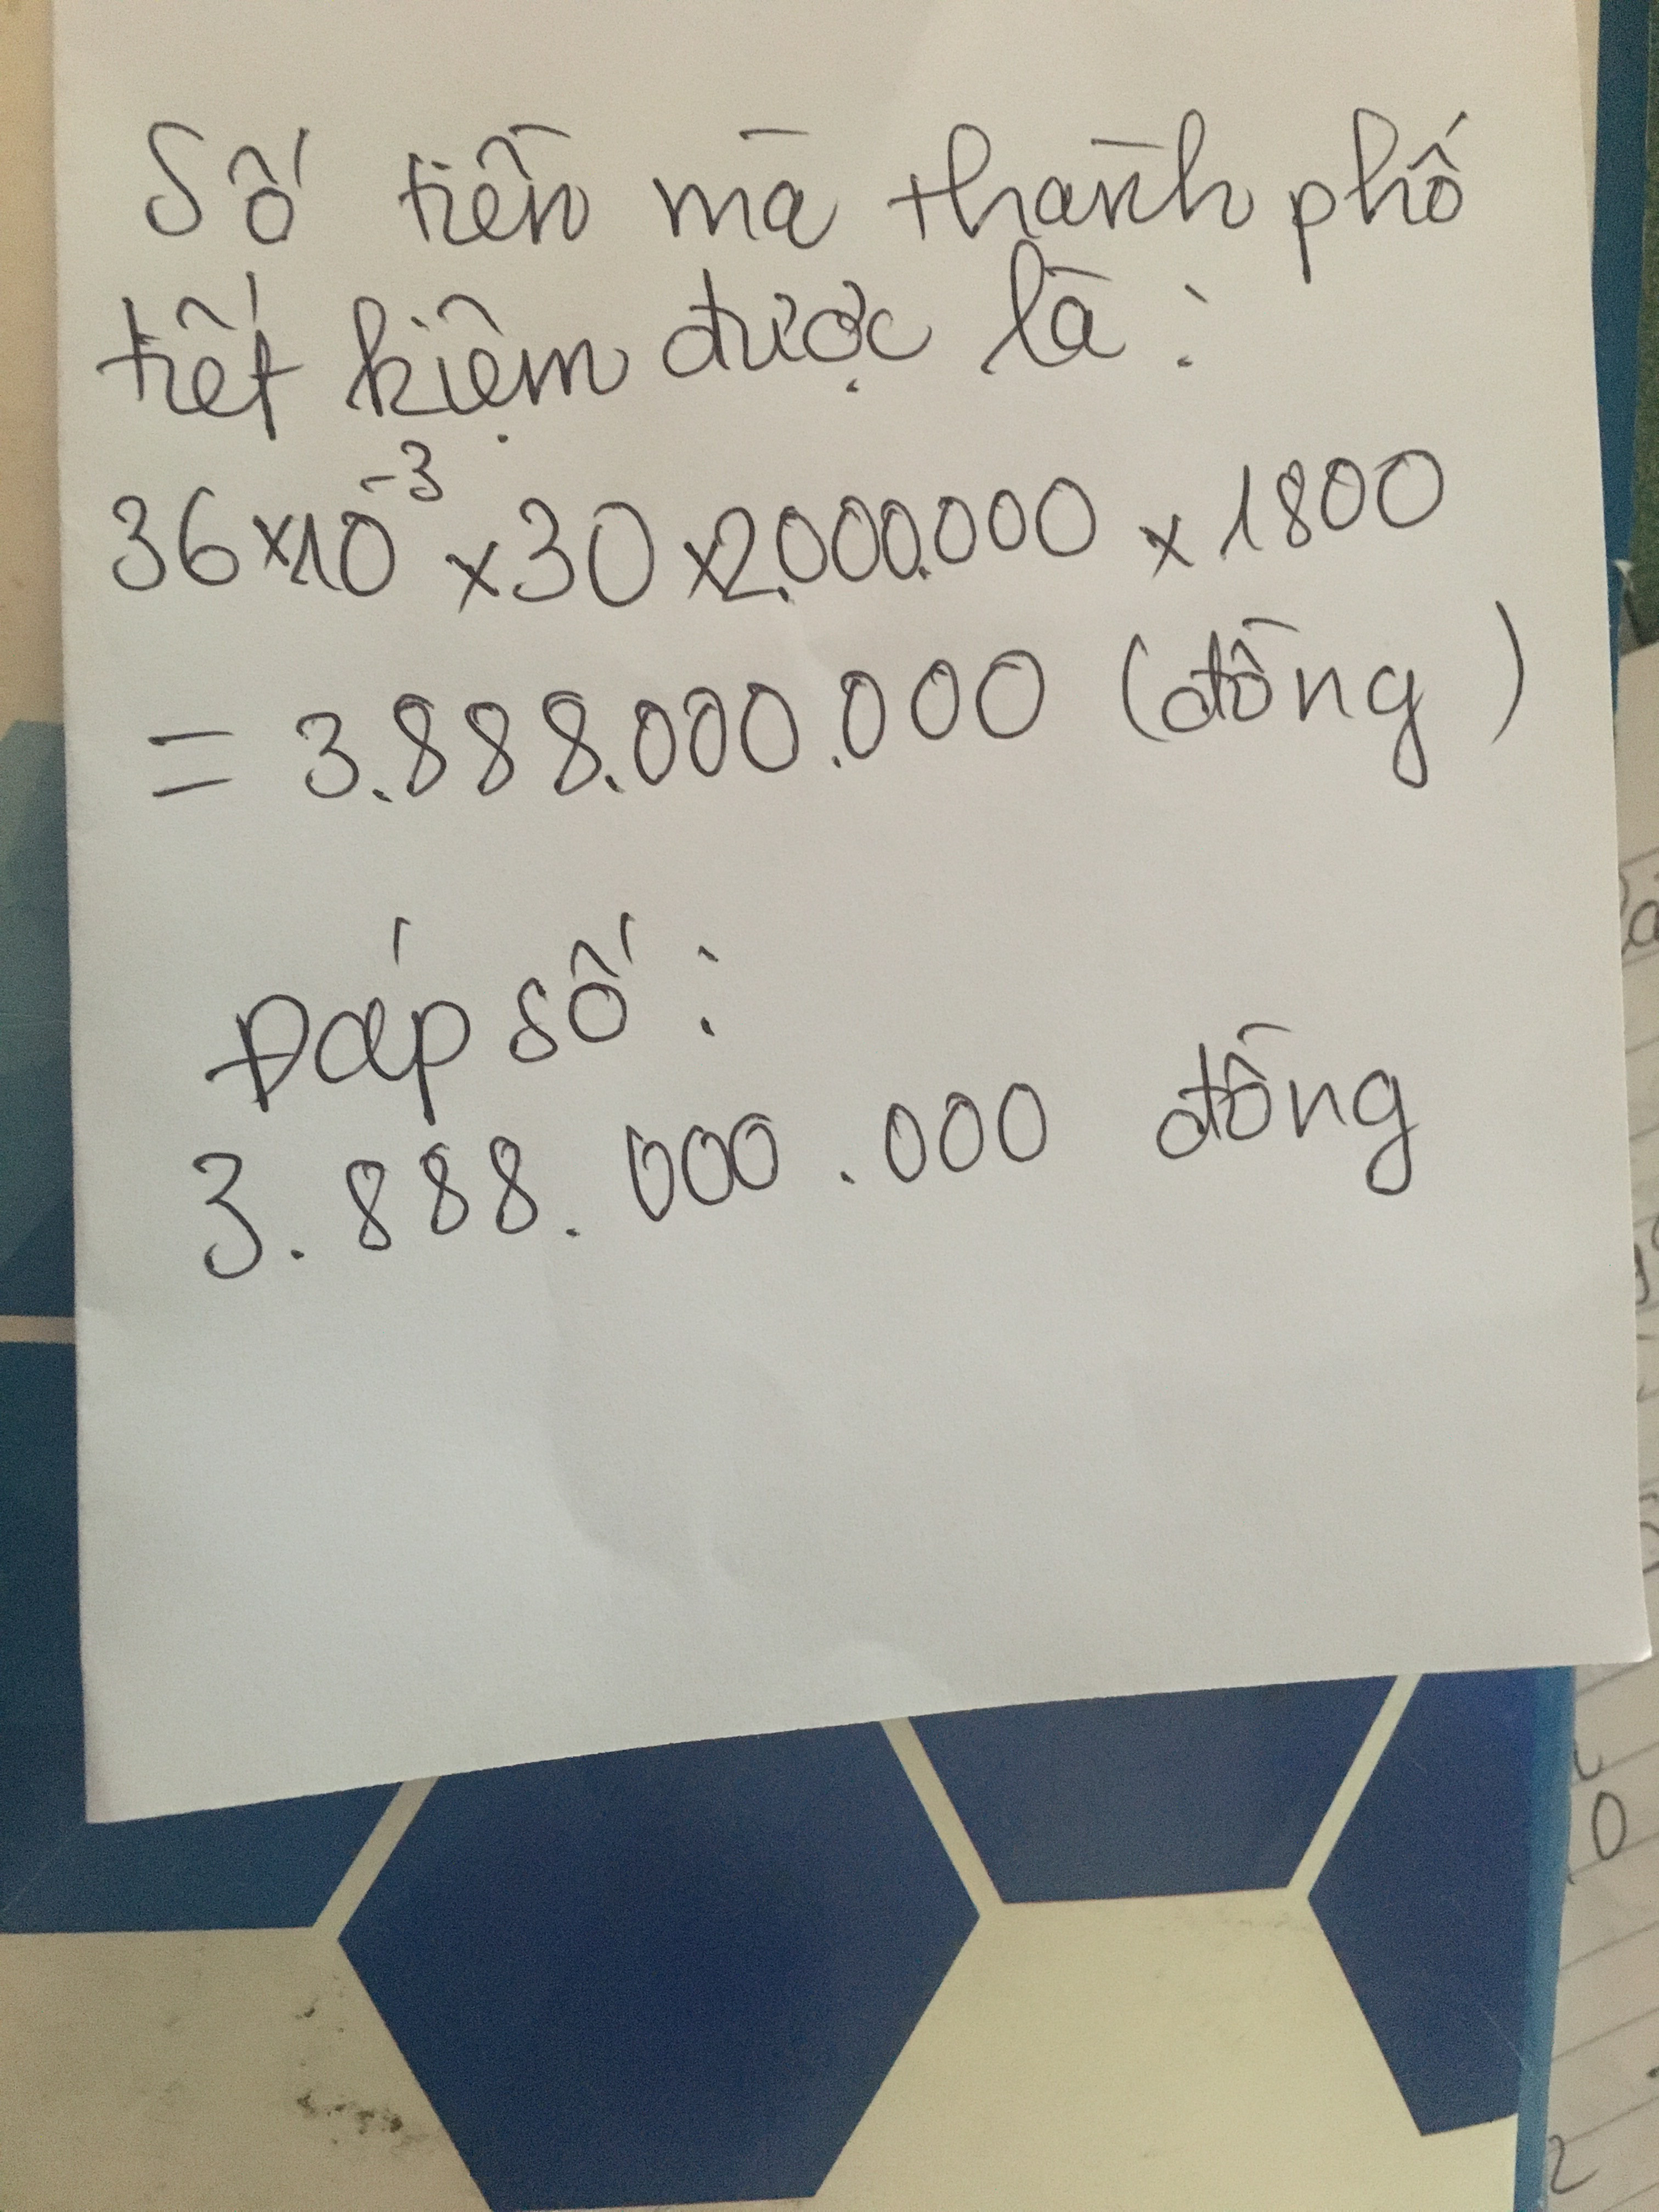 Số tiền mà thành phố
tiết kiệm được là :
36×10⁻³ ×30 ×2.000.000 × 1800
= 3.888.000.000 (đồng)
Đáp số :
3.888.000.000 đồng